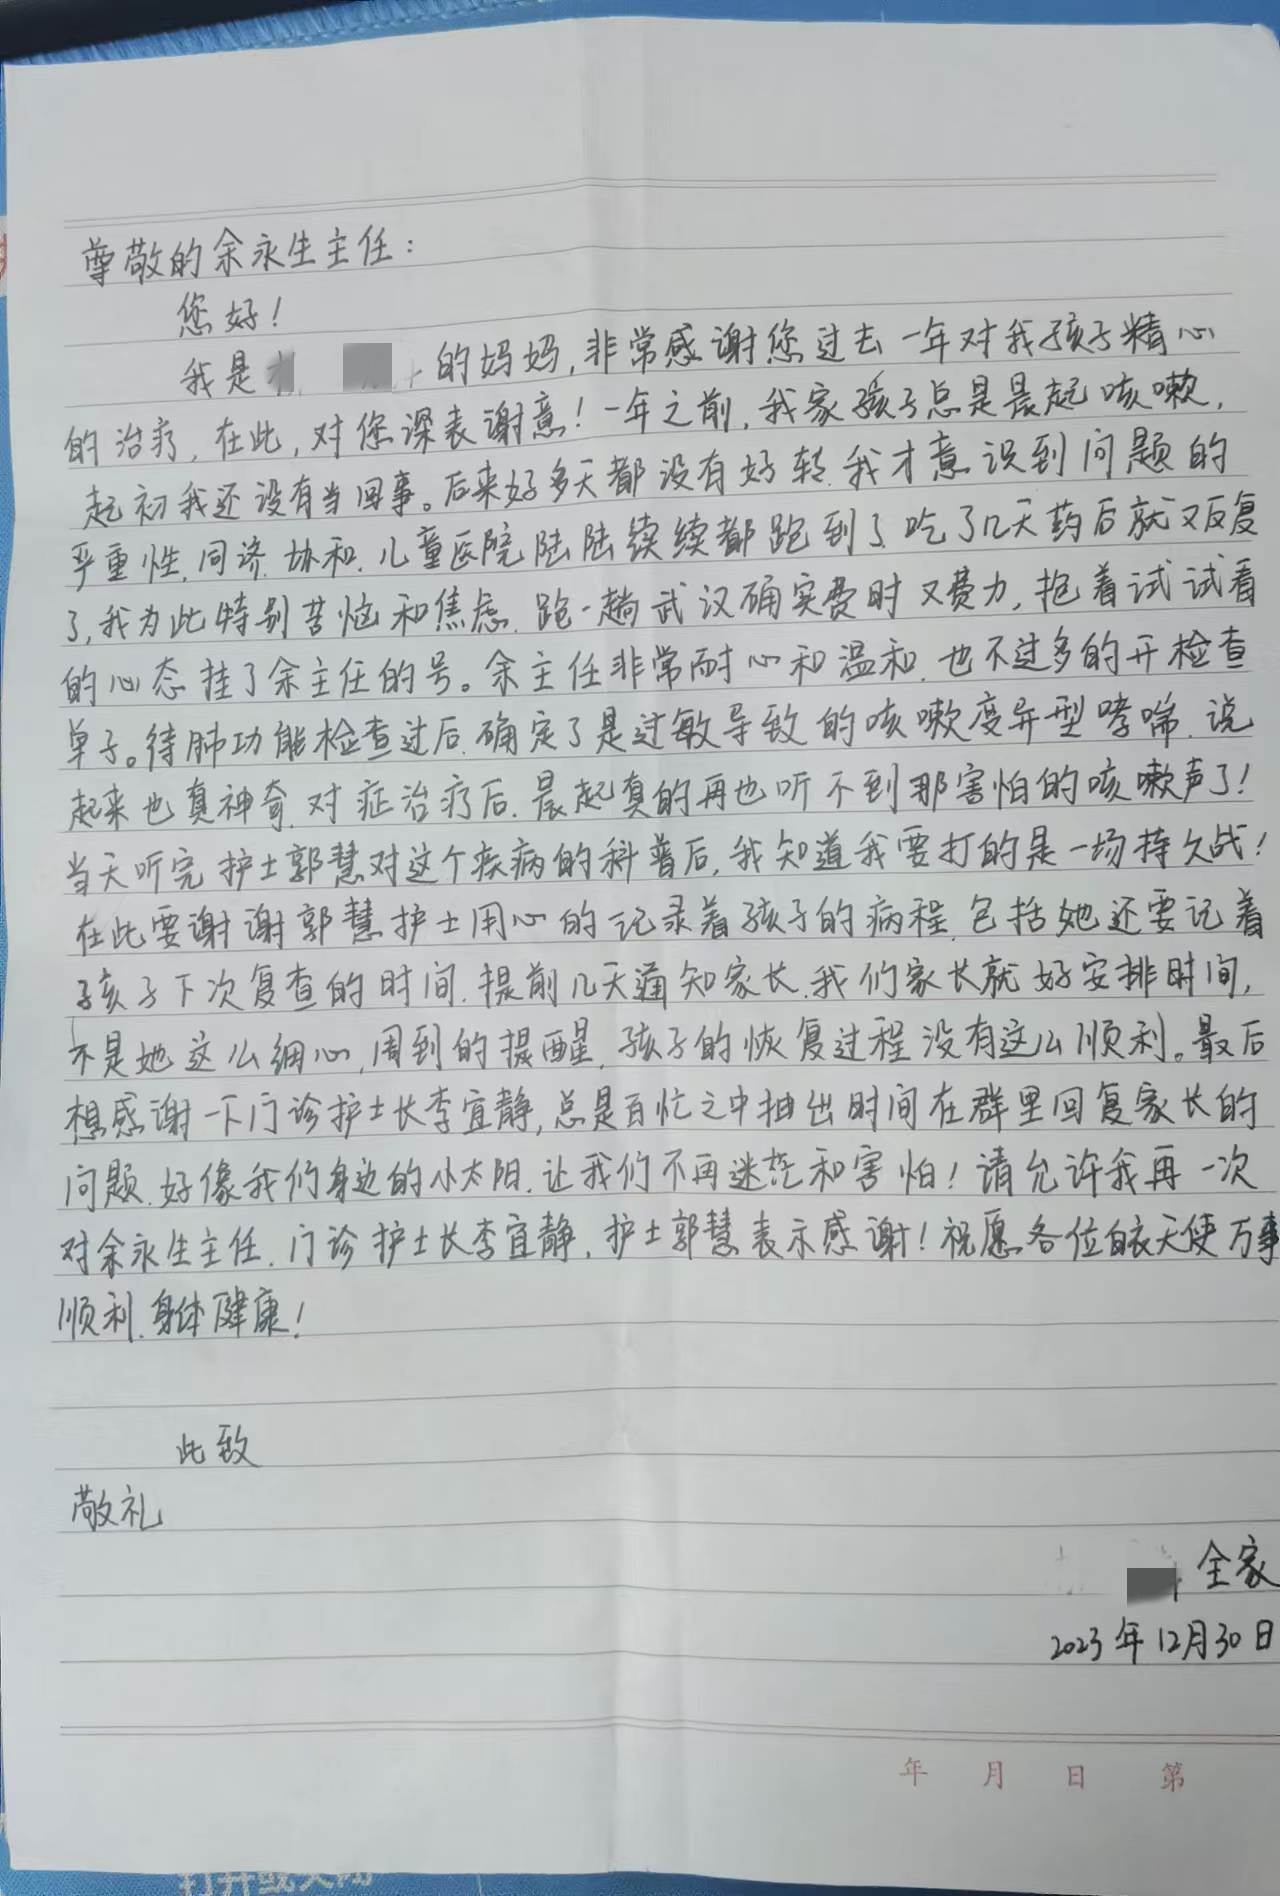 尊敬的余永生主任：
您好！
我是 的妈妈，非常感谢您过去一年对我孩子精心
的治疗，在此，对您深表谢意！一年之前，我家孩子总是晨起咳嗽，
起初我还没有当回事。后来好多天都没有好转.我才意识到问题的
严重性.同济.协和.儿童医院陆陆续续都跑到了.吃了几天药后就又反复
了，我为此特别苦恼和焦虑.跑一趟武汉确实费时又费力，抱着试试看
的心态挂了余主任的号。余主任非常耐心和温和.也不过多的开检查
单子。待肺功能检查过后.确定了是过敏导致的咳嗽变异型哮喘.说
起来也真神奇.对症治疗后.晨起真的再也听不到那害怕的咳嗽声了！
当天听完护士郭慧对这个疾病的科普后，我知道我要打的是一场持久战！
在此要谢谢郭慧护士用心的记录着孩子的病程.包括她还要记着
孩子下次复查的时间.提前几天通知家长.我们家长就好安排时间，
不是她这么细心，周到的提醒.孩子的恢复过程没有这么顺利。最后
想感谢一下门诊护士长李宜静，总是百忙之中抽出时间在群里回复家长的
问题.好像我们身边的小太阳.让我们不再迷茫和害怕！请允许我再一次
对余永生主任.门诊护士长李宜静.护士郭慧表示感谢！祝愿各位白衣天使万事
顺利.身体健康！
此致
敬礼
全家
2023年12月30日
年 月 日 第
打开或关闭